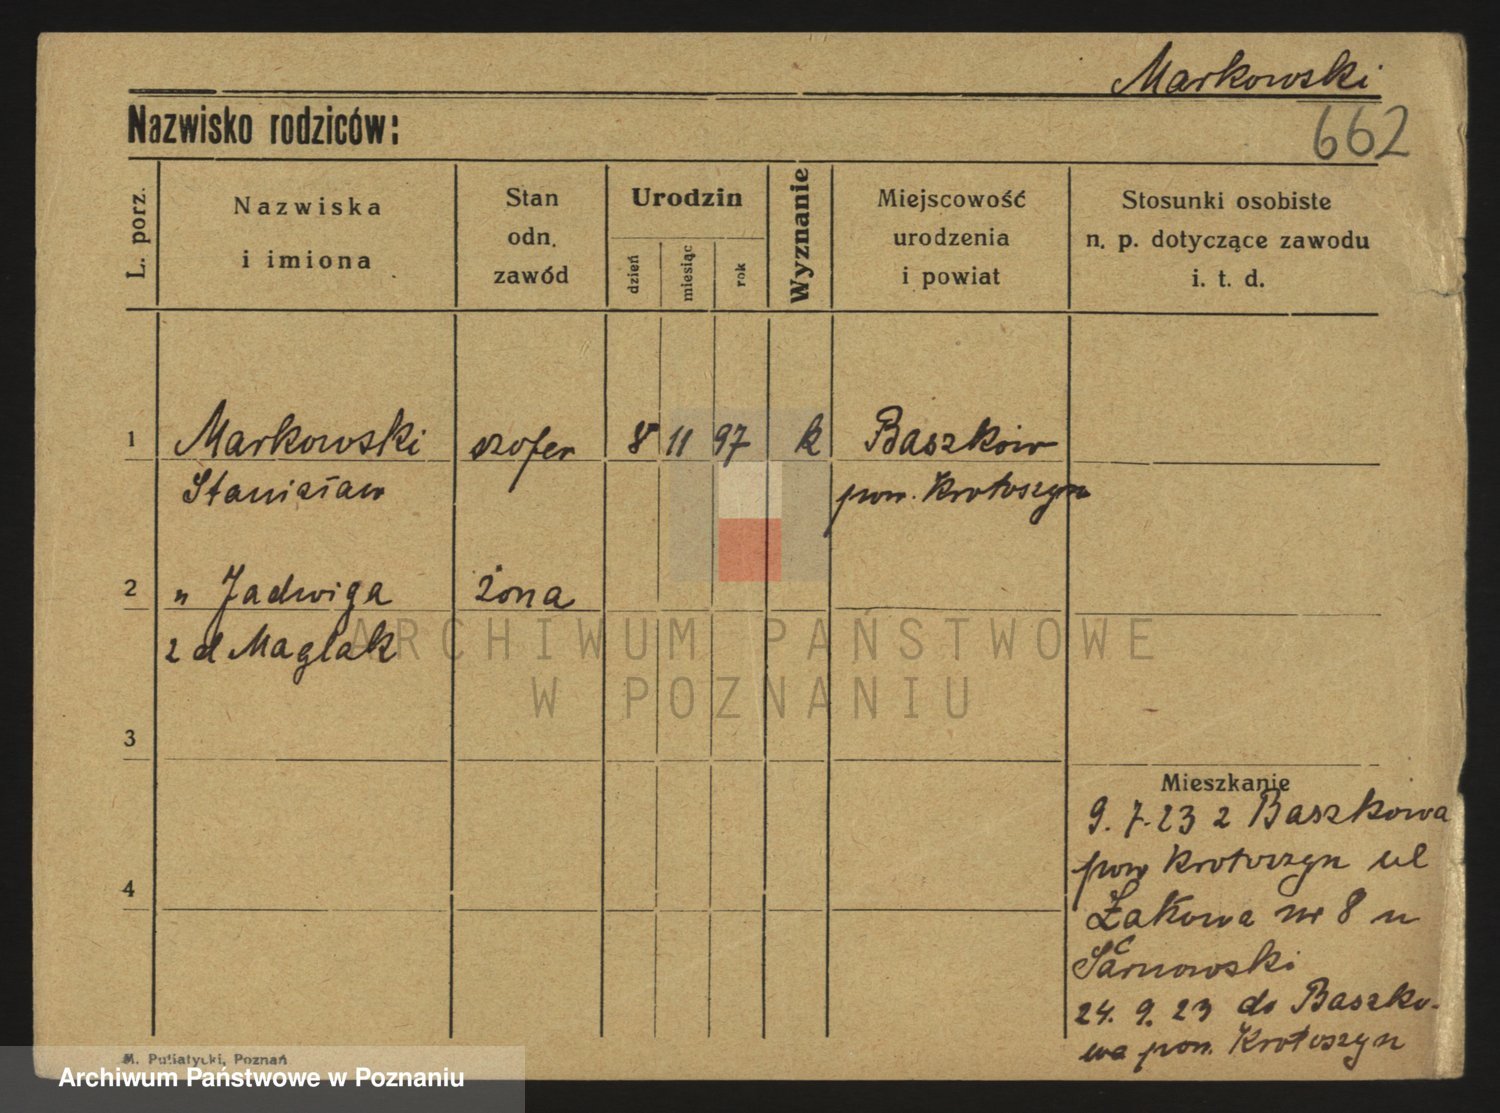 Markowski
662
Nazwisko rodziców:
L. porz.
Nazwiska
i imiona
Stan
odn.
zawód
Urodzin
dzień
miesiąc
rok
Wyznanie
Miejscowość
urodzenia
i powiat
Stosunki osobiste
n. p. dotyczące zawodu
i. t. d.
1 Markowski szofer 8 11 97 k Baszków
Stanisław pow. Krotoszyn
2 " Jadwiga żona
z d Maglak
ARCHIWUM PAŃSTWOWE
W POZNANIU
3
Mieszkanie
9. 7. 23 z Baszkowa
pow Krotoszyn ul
4
Łakowa nr 8 u
24. 9. 23 do Baszko-
wa pow. Krotoszyn
M. Putiatycki, Poznań
Archiwum Państwowe w Poznaniu